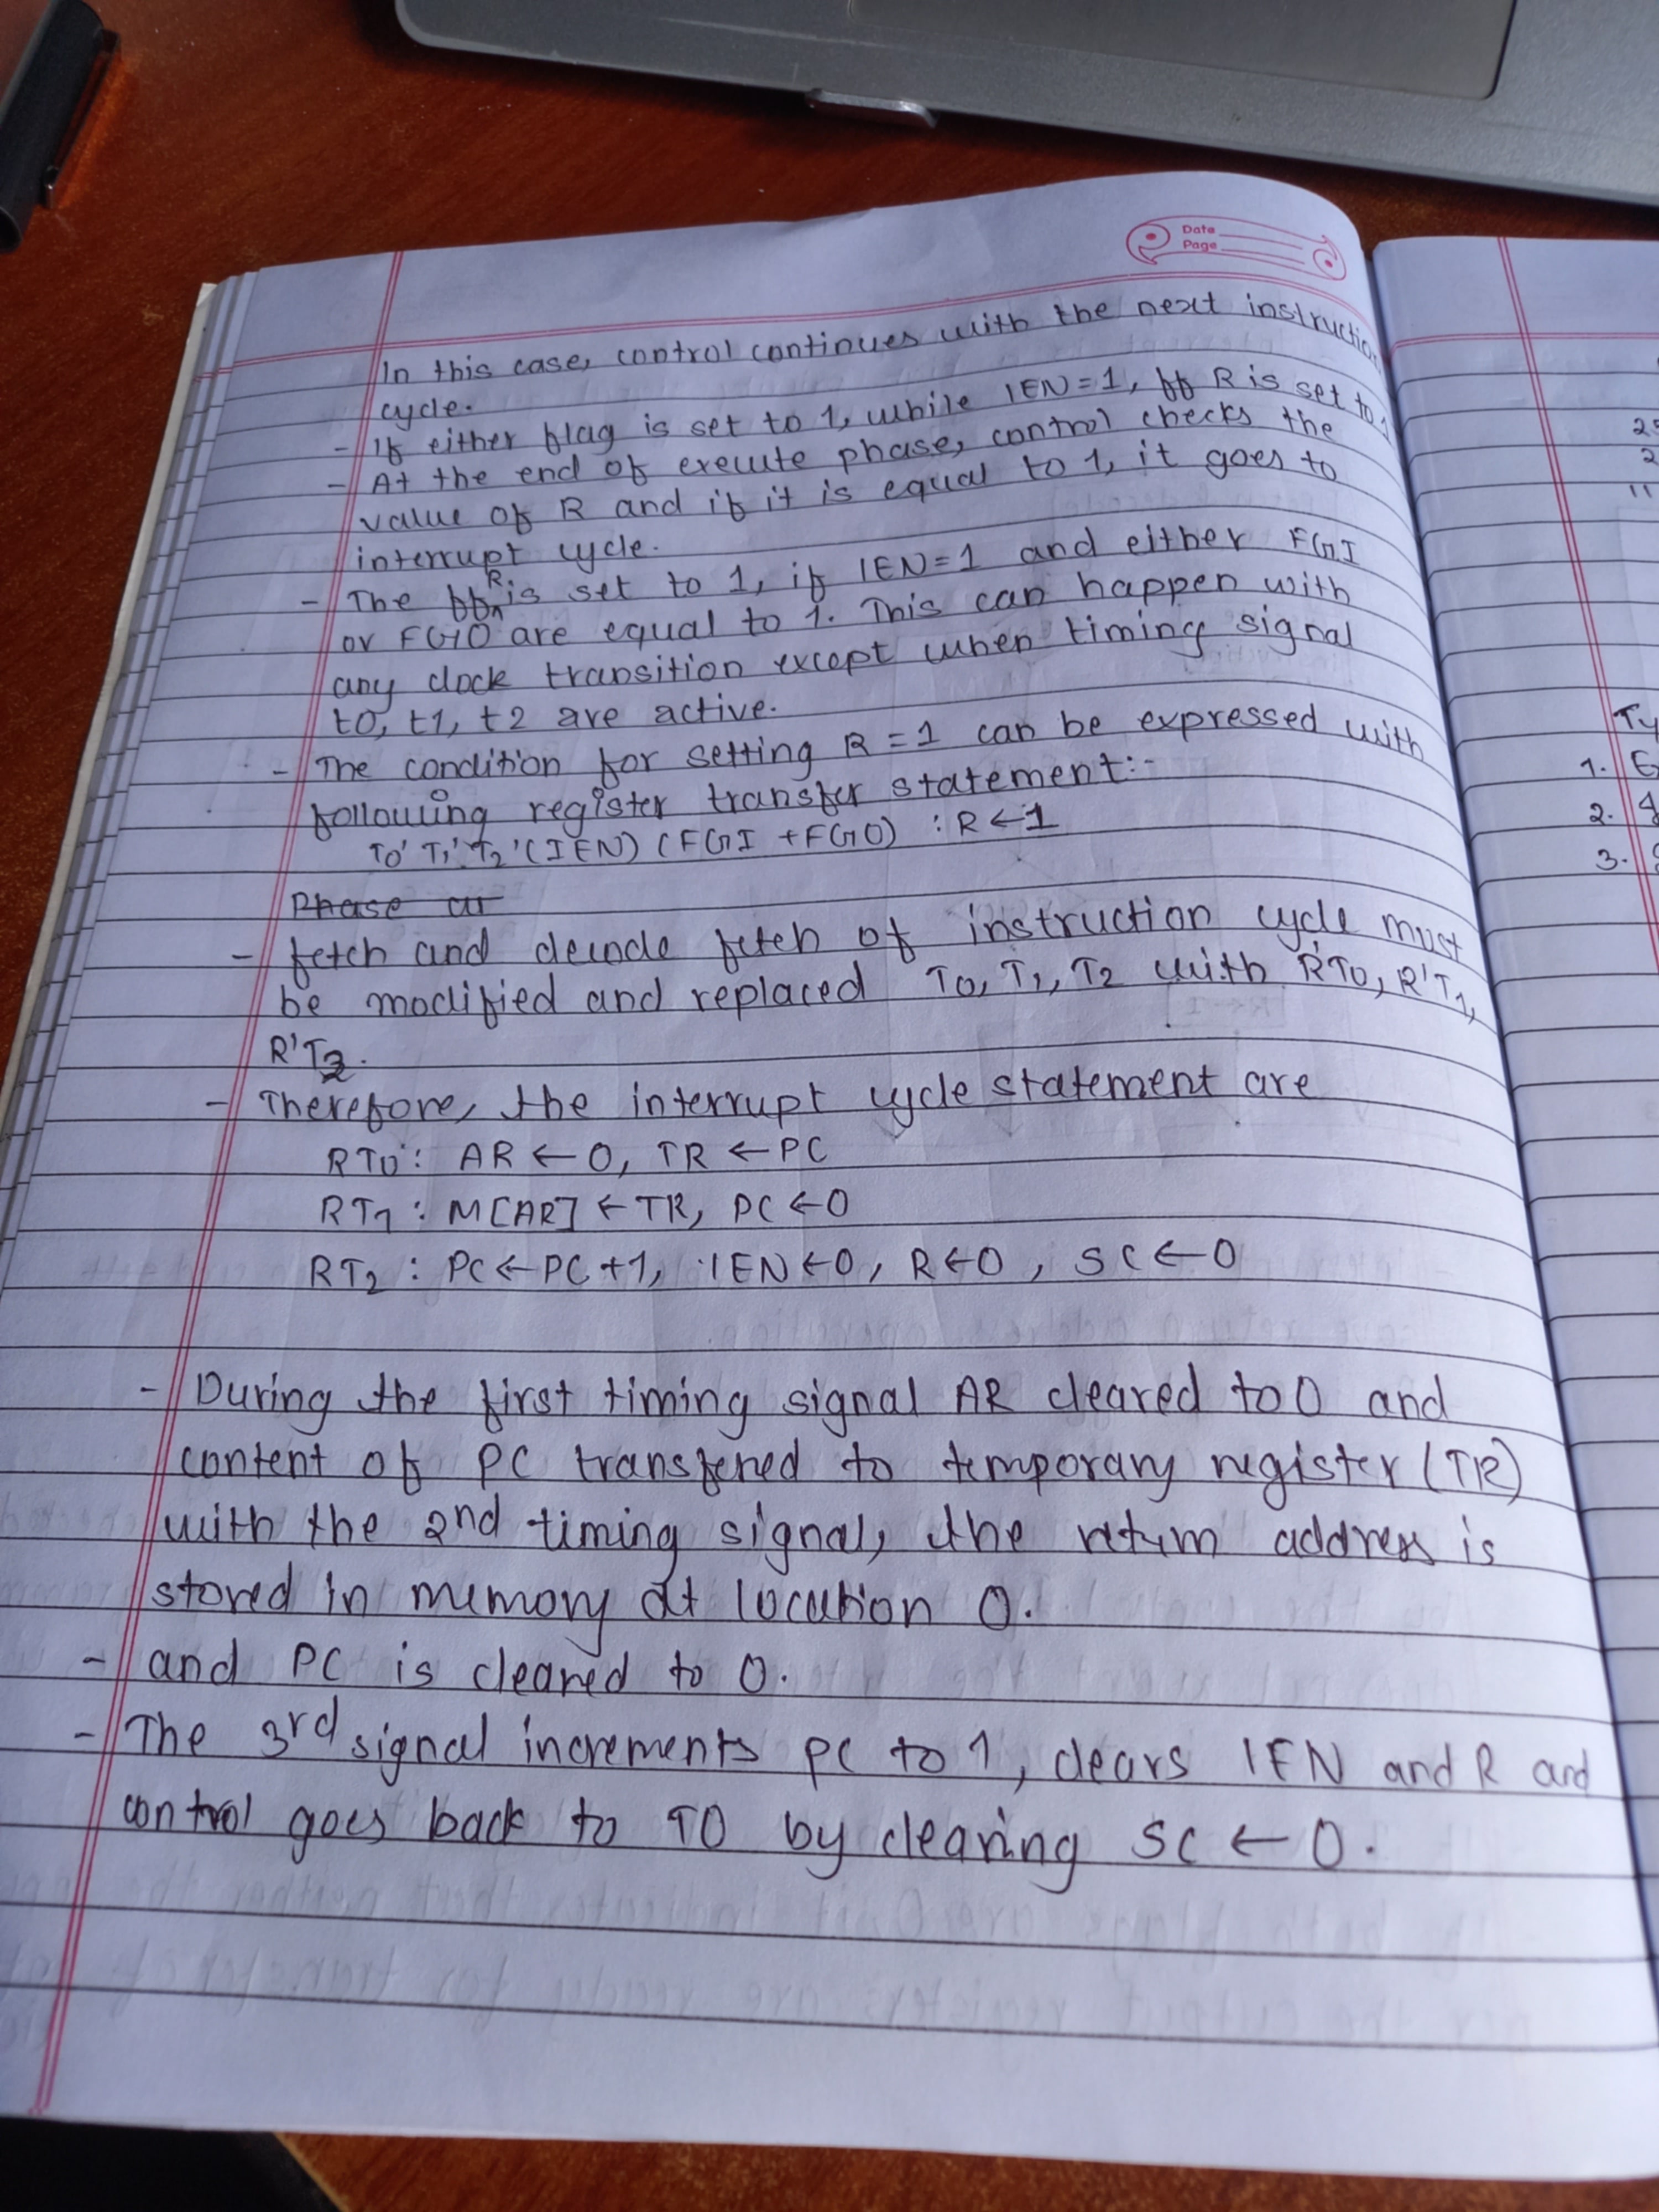 Date
Page
In this case, control continues with the next instruction
cycle.
- If either flag is set to 1, while IEN=1, ff R is set to 1
- At the end of execute phase, control checks the
value of R and if it is equal to 1, it goes to
interrupt cycle.
- The ff R is set to 1, if IEN=1 and either FGI
or FGO are equal to 1. This can happen with
any clock transition except when timing signal
t0, t1, t2 are active.
- The condition for setting R=1 can be expressed with
following register transfer statement:-
T0' T1' T2' (IEN) (FGI + FGO) : R ← 1
Phase ar
- fetch and decode fetch of instruction cycle must
be modified and replaced T0, T1, T2 with R'T0, R'T1,
R'T2.
- Therefore, the interrupt cycle statement are
RT0 : AR ← 0, TR ← PC
RT1 : M[AR] ← TR, PC ← 0
RT2 : PC ← PC +1, IEN ← 0, R ← 0, SC ← 0
- During the first timing signal AR cleared to 0 and
content of PC transfered to temporary register (TR)
with the 2nd timing signal, the return address is
stored in memory at location 0.
- and PC is cleared to 0.
- The 3rd signal increments PC to 1, clears IEN and R and
control goes back to T0 by clearing SC ← 0.
2
11
Ty
1.
2.
3.